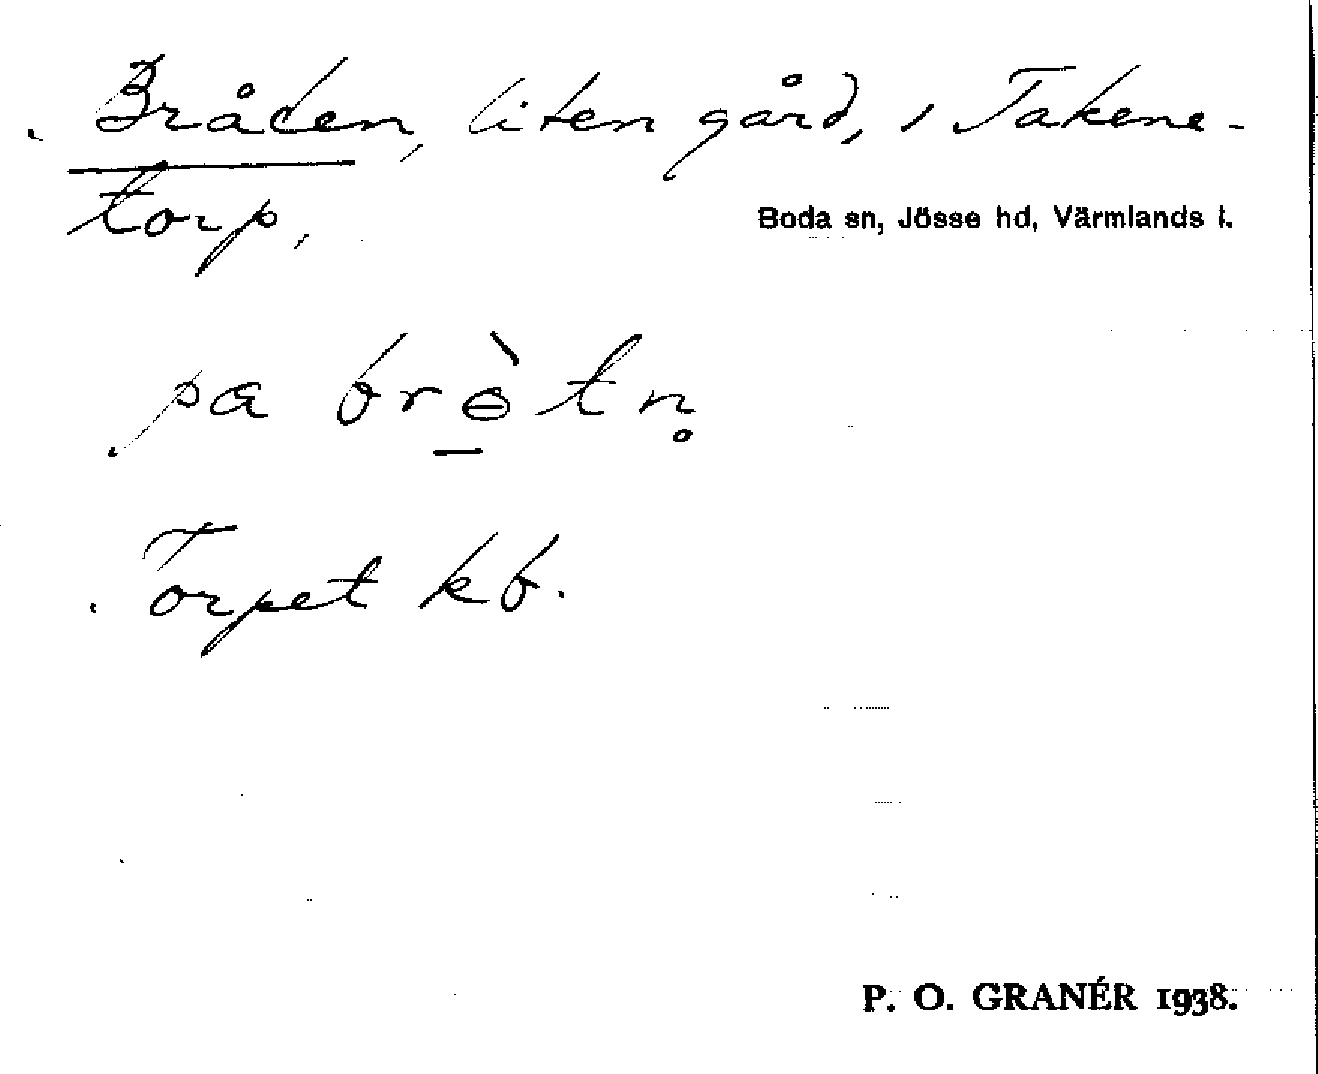 Bråten, liten gård, i Takene-
torp,
Boda sn, Jösse hd, Värmlands l.
pa brɵ̱̀tn̥
Torpet kb.
P. O. GRANÉR 1938.